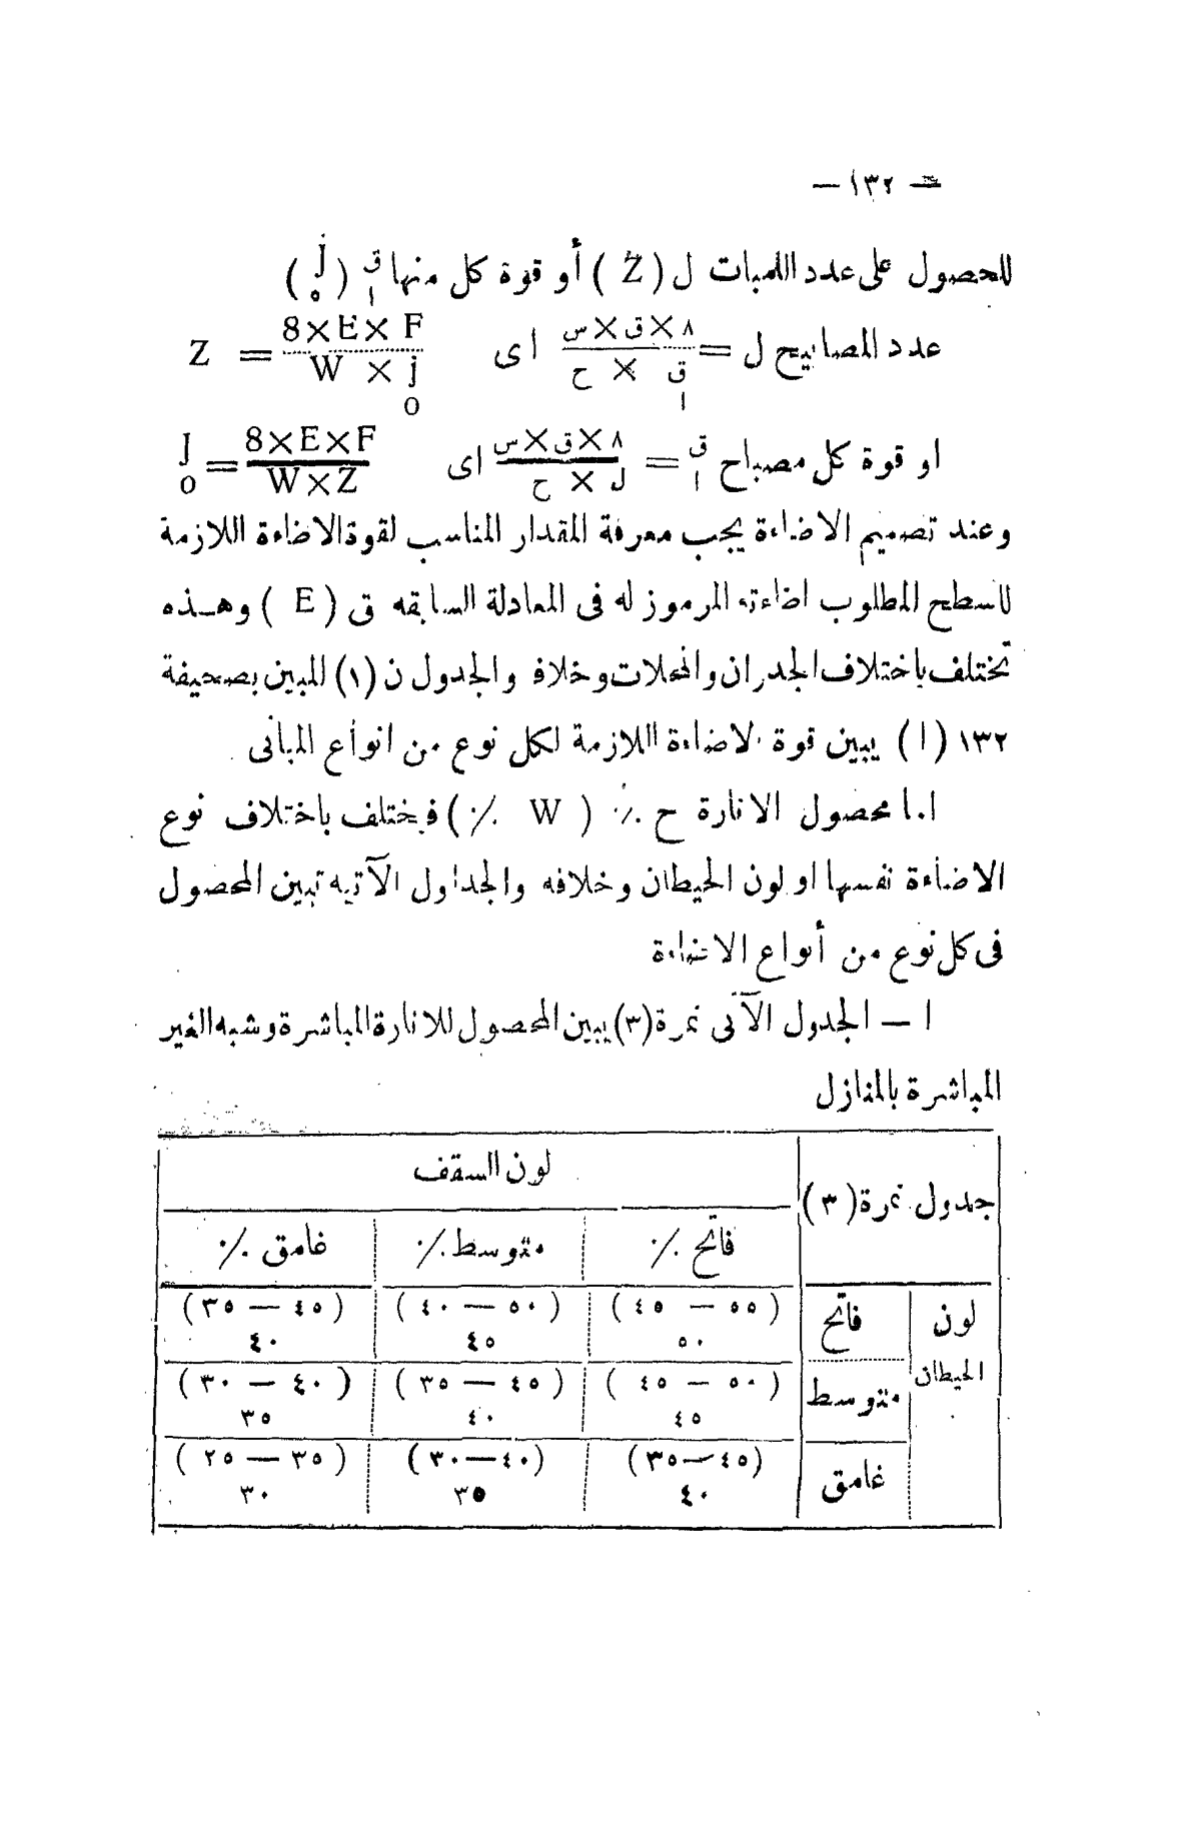 — ١٣٢ —
للحصول على عدد اللمبات ل ( Z ) أو قوة كل منها ق١ ( J٥ )
عدد المصابيح ل = ٨×ق×س / ق١ × ح اى Z = 8×E×F / W × j0
او قوة كل مصباح ق١ = ٨×ق×س / ل × ح اى J0 = 8×E×F / W×Z
وعند تصميم الاضاءة يجب معرفة المقدار المناسب لقوة الاضاءة اللازمة
للسطح المطلوب اضاءته المرموز له فى المعادلة السابقه ق ( E ) وهـذه
تختلف باختلاف الجدران والمحلات وخلافه والجدول ن (١) المبين بصحيفة
١٣٢ (ا) يبين قوة الاضاءة اللازمة لكل نوع من انواع المبانى .
اما محصول الانارة ح ٪ ( W ٪ ) فيختلف باختلاف نوع
الاضاءة نفسها او لون الحيطان وخلافه والجداول الآتيه تبين المحصول
فى كل نوع من أنواع الاضاءة
ا — الجدول الآتى نمرة (٣) يبين المحصول للانارة المباشرة وشبه الغير
المباشرة بالمنازل
جدول نمرة ( ٣ ) لون السقف
فاتح ٪ متوسط ٪ غامق ٪
لون الحيطان
فاتح ( ٥٥ — ٤٥ ) ( ٥٠ — ٤٠ ) ( ٤٥ — ٣٥ )
٥٠ ٤٥ ٤٠
متوسط ( ٥٠ — ٤٥ ) ( ٤٥ — ٣٥ ) ( ٤٠ — ٣٠ )
٤٥ ٤٠ ٣٥
غامق ( ٤٥ — ٣٥ ) ( ٤٠ — ٣٠ ) ( ٣٥ — ٢٥ )
٤٠ ٣٥ ٣٠